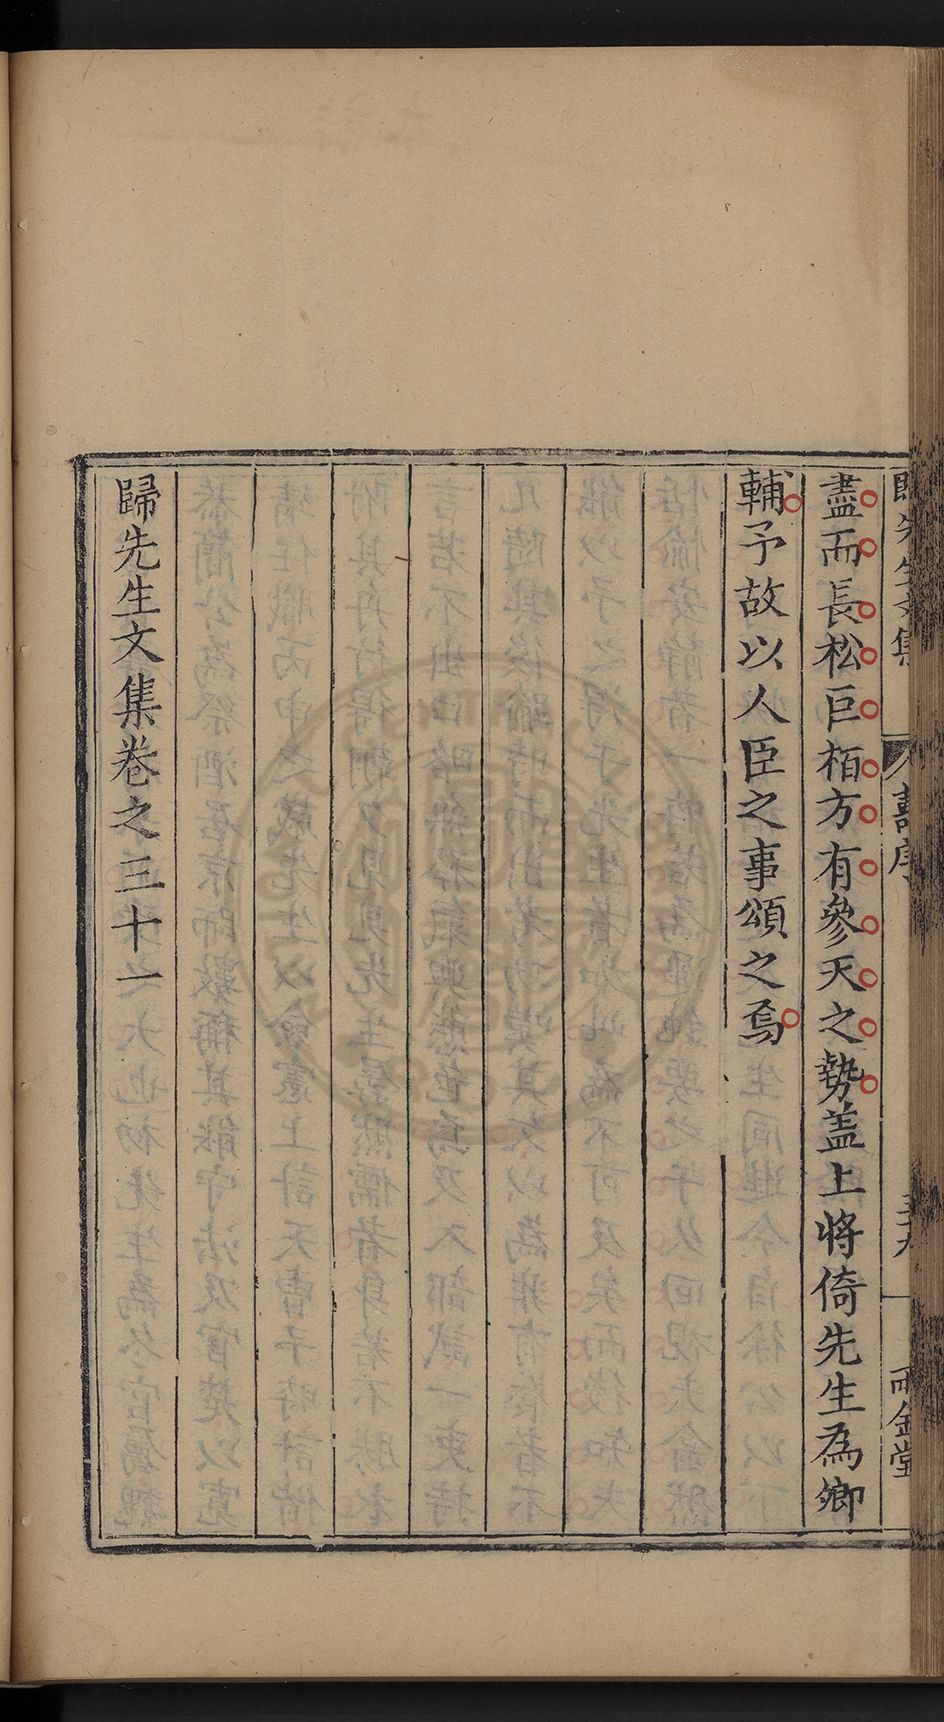 歸先生文集
壽序
三十九
雨金堂
盡而長松巨栢方有參天之勢盖上將倚先生為鄉
輔予故以人臣之事頌之焉
歸先生文集卷之三十一